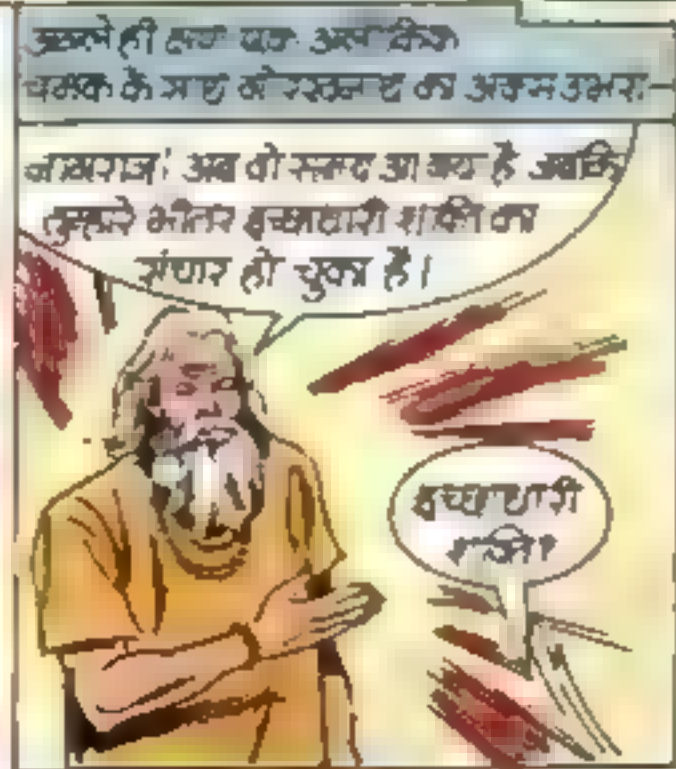 अगले ही क्षण एक अलौकिक
चमक के साथ गोरखनाथ का अक्स उभरा-
नागराज! अब वो समय आ गया है जबकि
तुम्हारे भीतर इच्छाधारी शक्ति का
संचार हो चुका है।
इच्छाधारी
शक्ति?